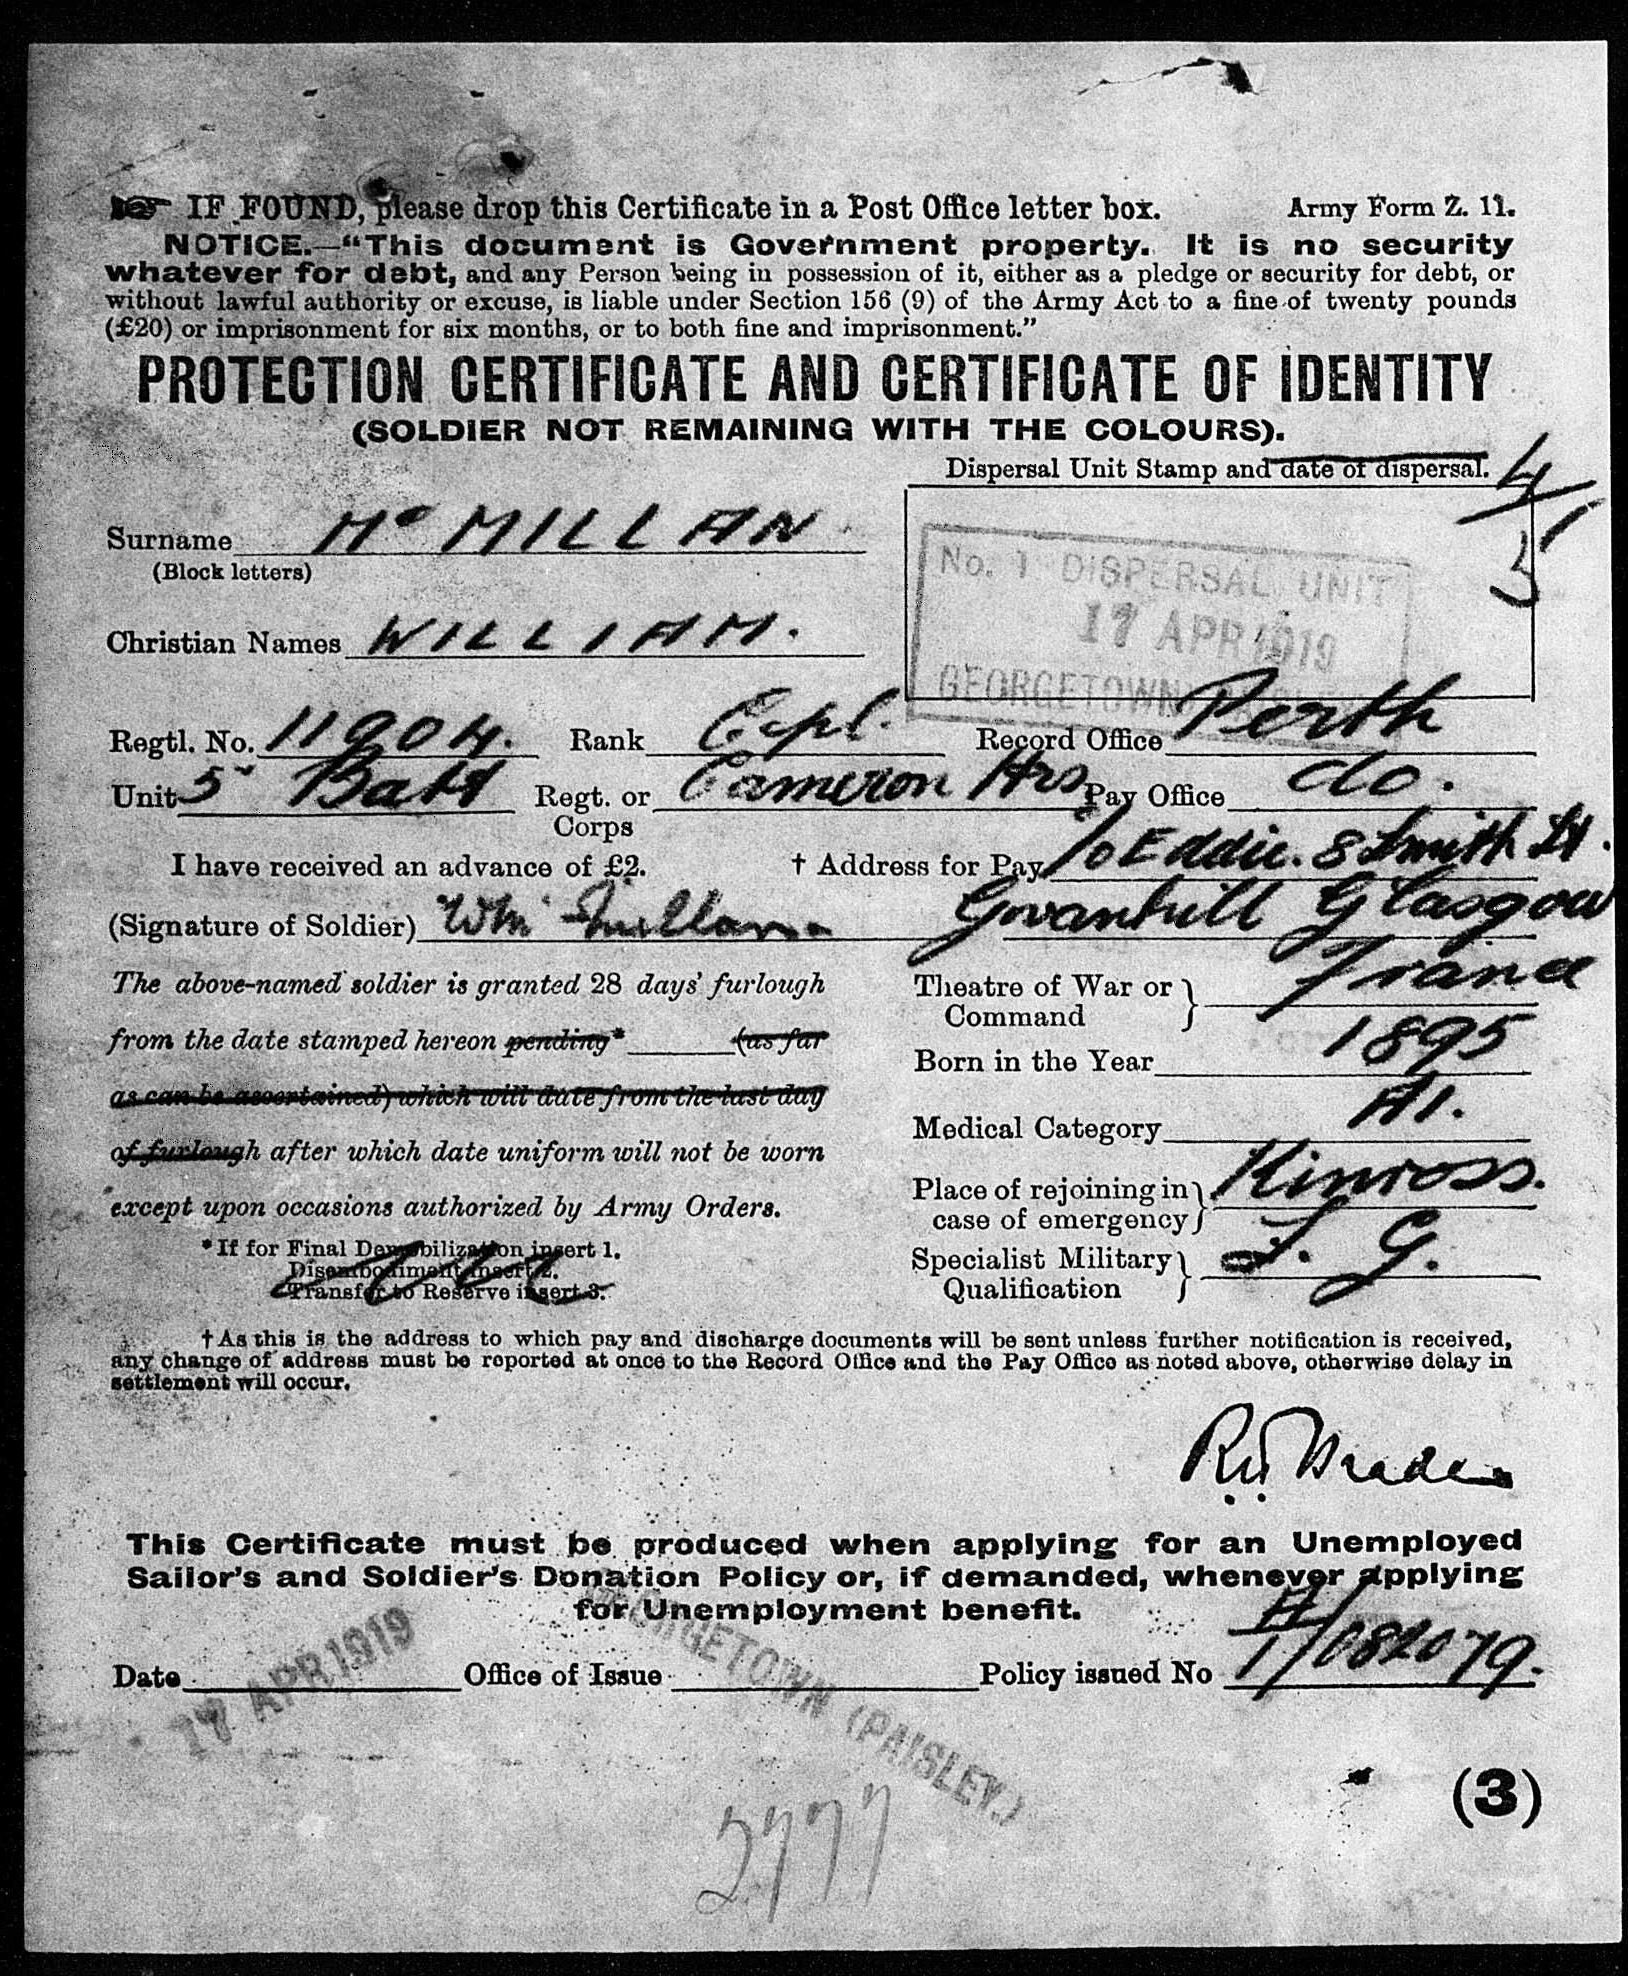 IF FOUND, please drop this Certificate in a Post Office letter box. Army Form Z. 11.
NOTICE.—“This document is Government property. It is no security
whatever for debt, and any Person being in possession of it, either as a pledge or security for debt, or
without lawful authority or excuse, is liable under Section 156 (9) of the Army Act to a fine of twenty pounds
(£20) or imprisonment for six months, or to both fine and imprisonment.”
PROTECTION CERTIFICATE AND CERTIFICATE OF IDENTITY
(SOLDIER NOT REMAINING WITH THE COLOURS).
Dispersal Unit Stamp and date of dispersal.
4/5
Surname Mc MILLAN
(Block letters)
No. 1 DISPERSAL UNIT
17 APR 1919
GEORGETOWN
Christian Names WILLIAM.
Regtl. No. 11904. Rank Cpl. Record Office Perth
Unit 5 Batt Regt. or Corps Cameron Hrs Pay Office do.
I have received an advance of £2. † Address for Pay c/o Eddie. 8 Smith St.
(Signature of Soldier) Wm Millan Govanhill Glasgow
The above-named soldier is granted 28 days' furlough
from the date stamped hereon pending* (as far
as can be ascertained) which will date from the last day
of furlough after which date uniform will not be worn
except upon occasions authorized by Army Orders.
*If for Final Demobilization insert 1.
Disembodiment insert 2.
Transfer to Reserve insert 3.
Theatre of War or Command France
Born in the Year 1895
Medical Category A1.
Place of rejoining in case of emergency Kinross.
Specialist Military Qualification L. G.
† As this is the address to which pay and discharge documents will be sent unless further notification is received,
any change of address must be reported at once to the Record Office and the Pay Office as noted above, otherwise delay in
settlement will occur.
This Certificate must be produced when applying for an Unemployed
Sailor's and Soldier's Donation Policy or, if demanded, whenever applying
for Unemployment benefit.
Date 17 APR 1919 Office of Issue GEORGETOWN (PAISLEY.) Policy issued No A/1/082079.
(3)